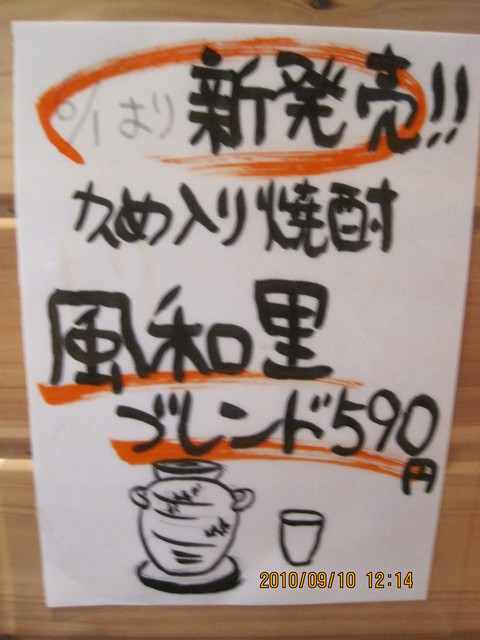 9/1より 新発売!!
かめ入り焼酎
風和里
ブレンド590円
2010/09/10 12:14